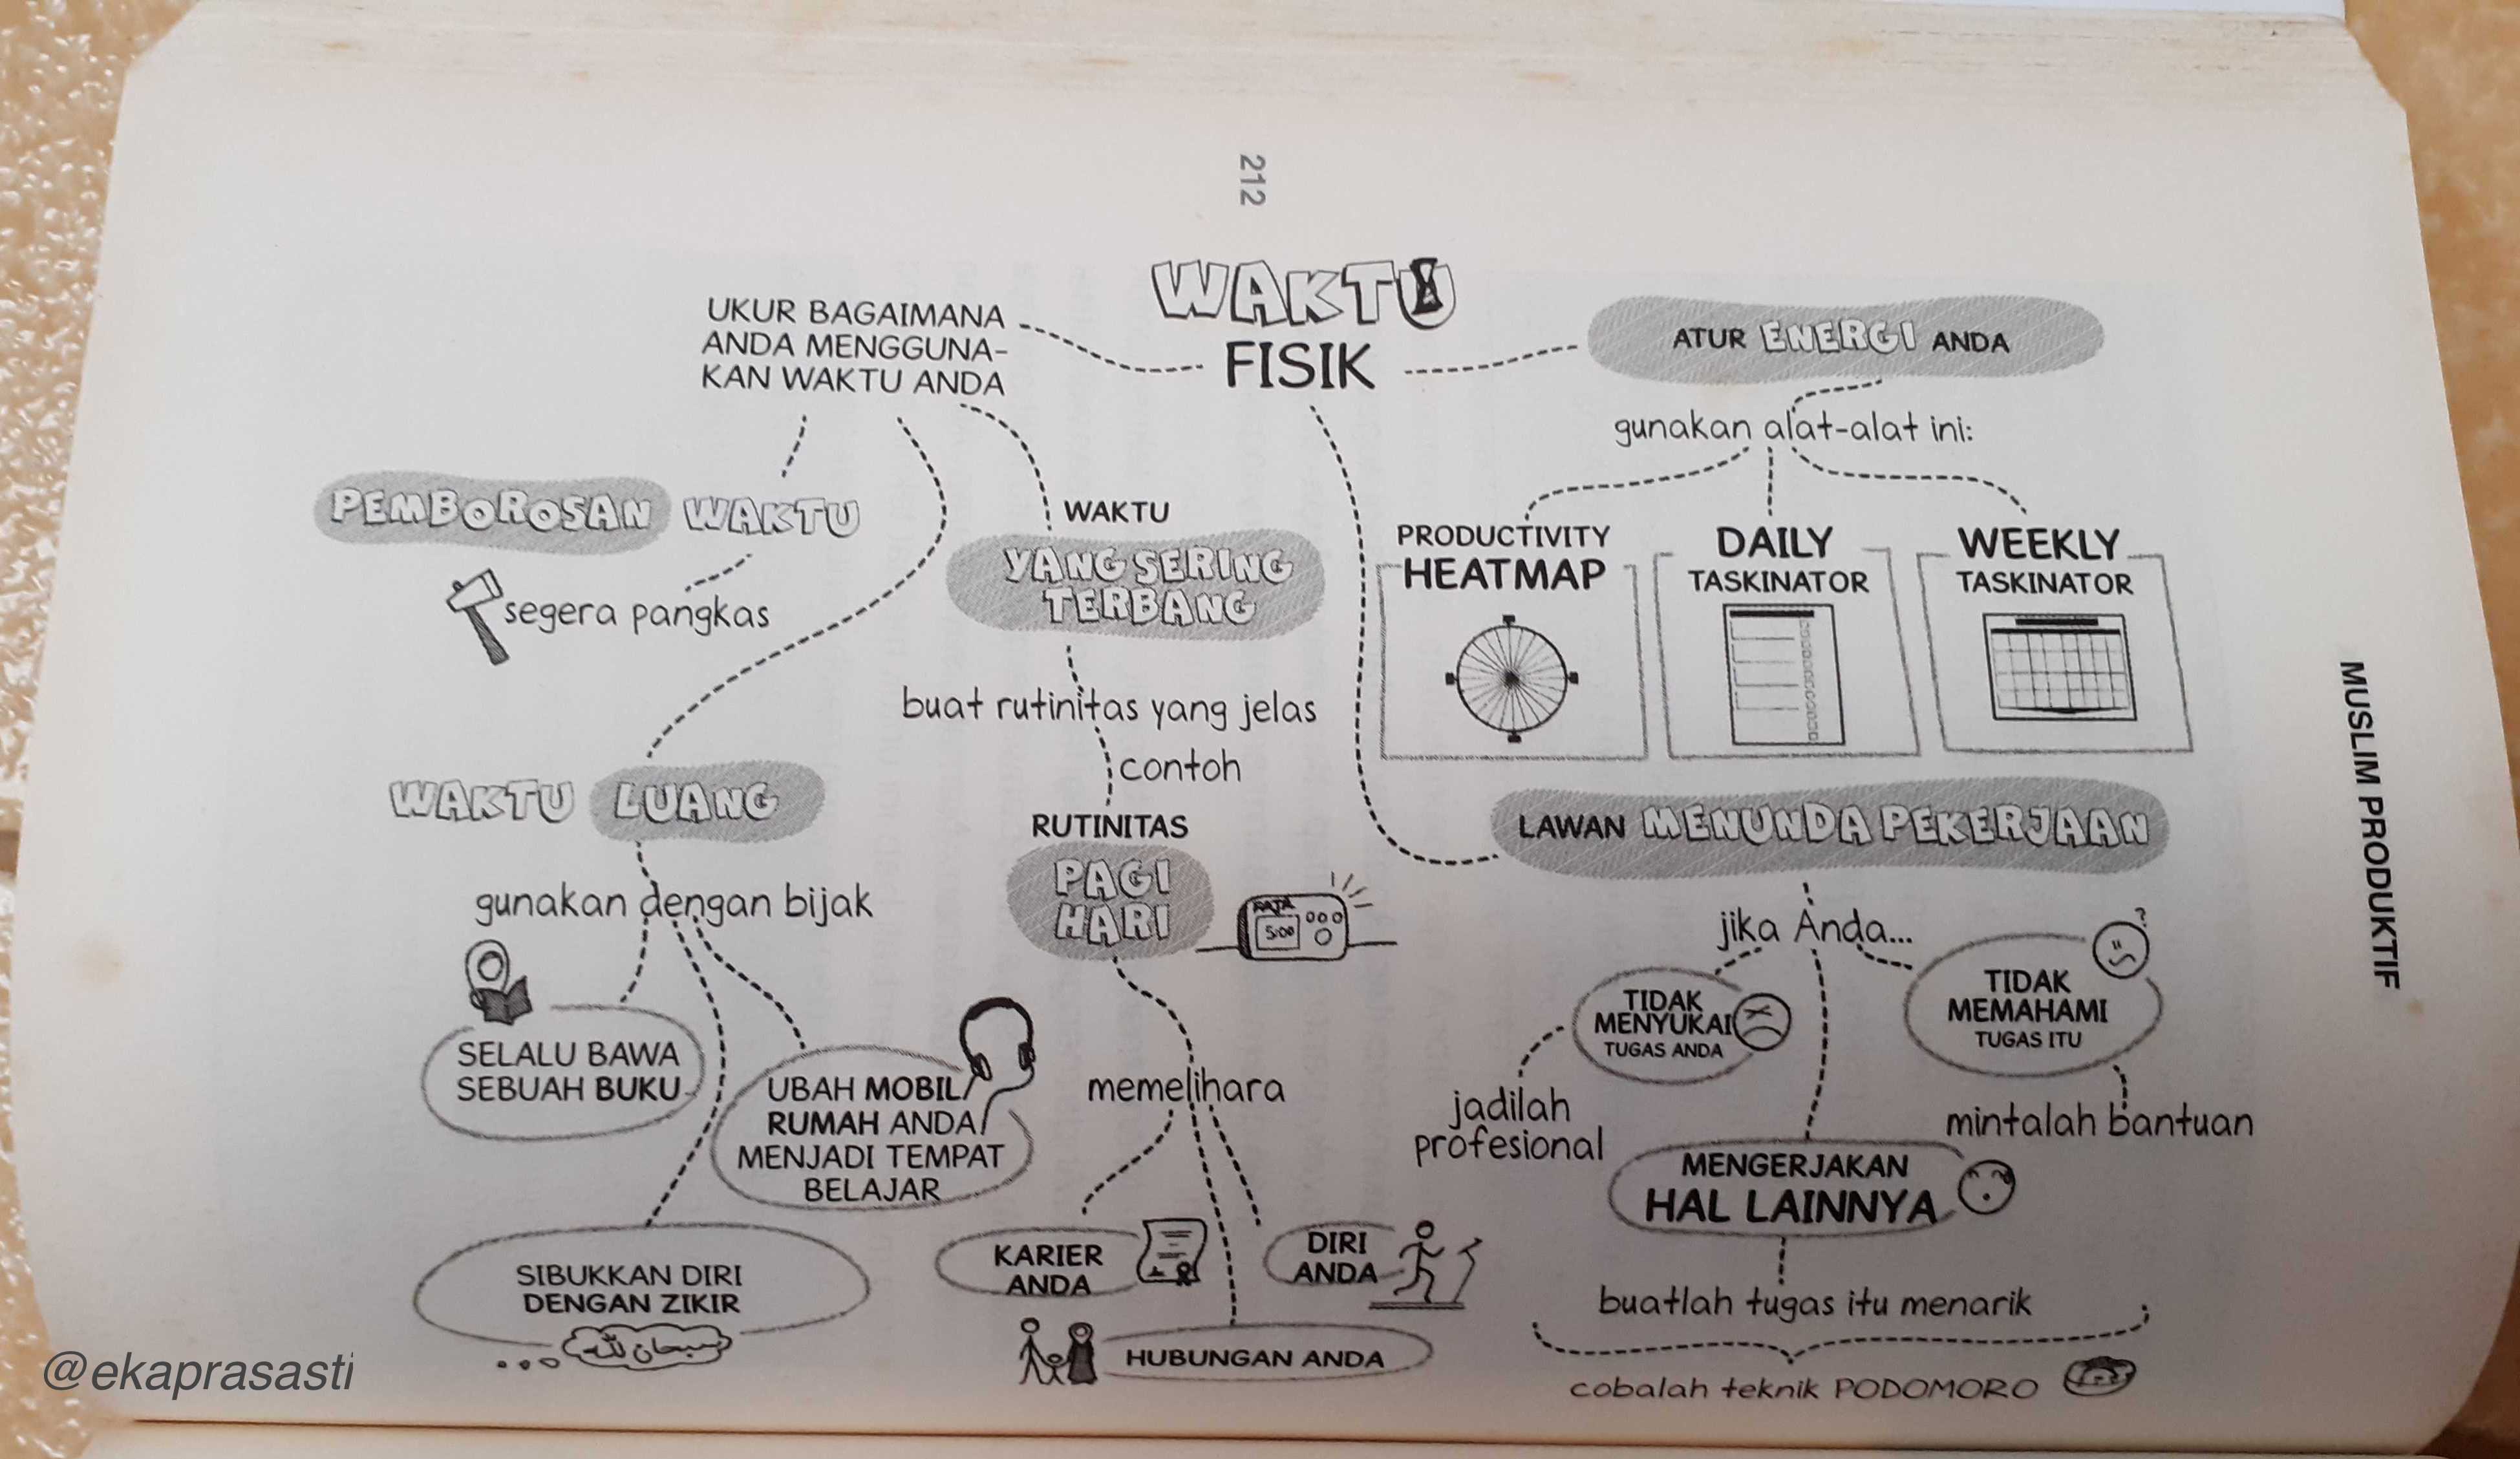 212
WAKTU
FISIK
UKUR BAGAIMANA
ANDA MENGGUNA-
KAN WAKTU ANDA
PEMBOROSAN WAKTU
segera pangkas
WAKTU
YANG SERING
TERBANG
buat rutinitas yang jelas
contoh
RUTINITAS
PAGI
HARI
5:00
memelihara
KARIER
ANDA
DIRI
ANDA
HUBUNGAN ANDA
WAKTU LUANG
gunakan dengan bijak
SELALU BAWA
SEBUAH BUKU
UBAH MOBIL/
RUMAH ANDA
MENJADI TEMPAT
BELAJAR
SIBUKKAN DIRI
DENGAN ZIKIR
سبحان الله
ATUR ENERGI ANDA
gunakan alat-alat ini:
PRODUCTIVITY
HEATMAP
DAILY
TASKINATOR
WEEKLY
TASKINATOR
LAWAN MENUNDA PEKERJAAN
jika Anda...
TIDAK
MENYUKAI
TUGAS ANDA
jadilah
profesional
TIDAK
MEMAHAMI
TUGAS ITU
?
mintalah bantuan
MENGERJAKAN
HAL LAINNYA
buatlah tugas itu menarik
cobalah teknik PODOMORO
MUSLIM PRODUKTIF
@ekaprasasti